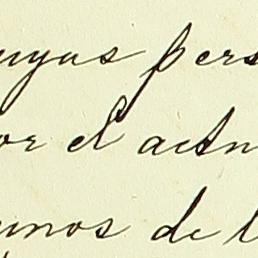 uyas pers
or el actu
unos de l